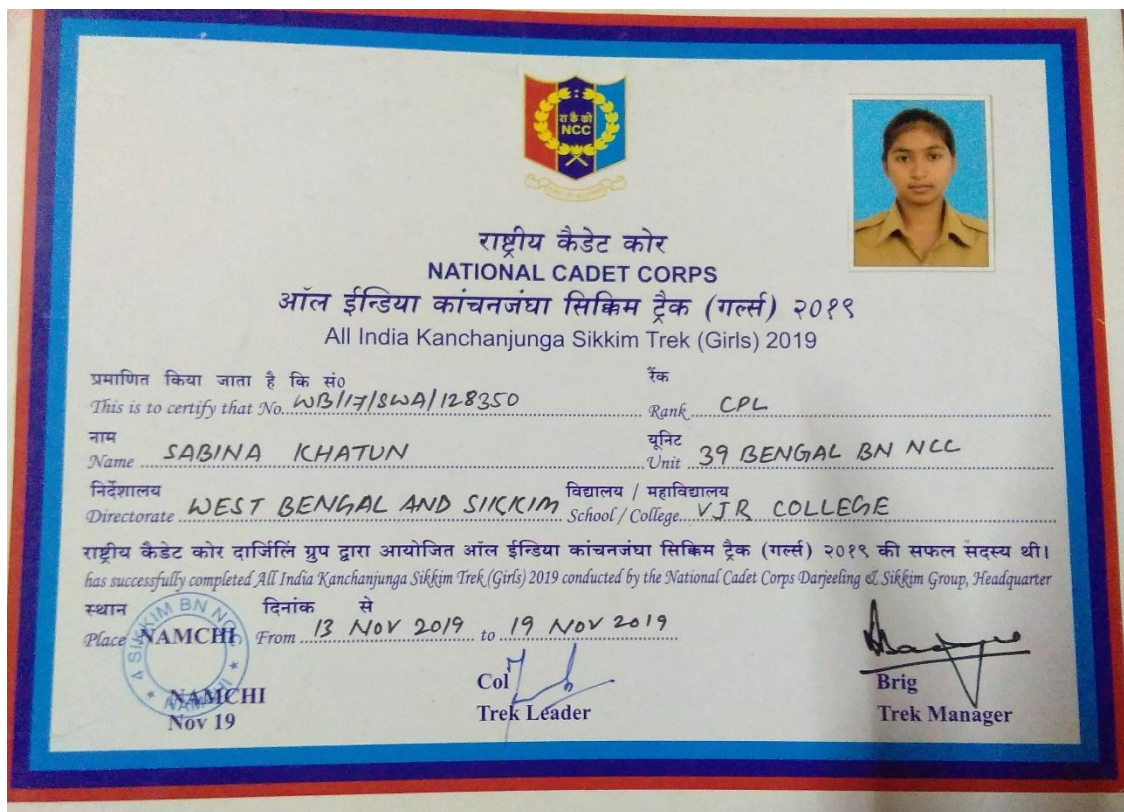 रा कै को
NCC
राष्ट्रीय कैडेट कोर
NATIONAL CADET CORPS
ऑल ईन्डिया कांचनजंघा सिक्किम ट्रैक (गर्ल्स) २०१९
All India Kanchanjunga Sikkim Trek (Girls) 2019
प्रमाणित किया जाता है कि सं० रैंक
This is to certify that No. WB/17/SWA/128350 Rank CPL
नाम यूनिट
Name SABINA KHATUN Unit 39 BENGAL BN NCC
निर्देशालय विद्यालय / महाविद्यालय
Directorate WEST BENGAL AND SIKKIM School / College VJR COLLEGE
राष्ट्रीय कैडेट कोर दार्जिलिं ग्रुप द्वारा आयोजित ऑल ईन्डिया कांचनजंघा सिक्किम ट्रैक (गर्ल्स) २०१९ की सफल सदस्य थी।
has successfully completed All India Kanchanjunga Sikkim Trek (Girls) 2019 conducted by the National Cadet Corps Darjeeling & Sikkim Group, Headquarter
स्थान दिनांक से
Place NAMCHI From 13 NOV 2019 to 19 NOV 2019
4 SIKKIM BN NCC
NAMCHI
Col Brig
NAMCHI
Nov 19 Trek Leader Trek Manager